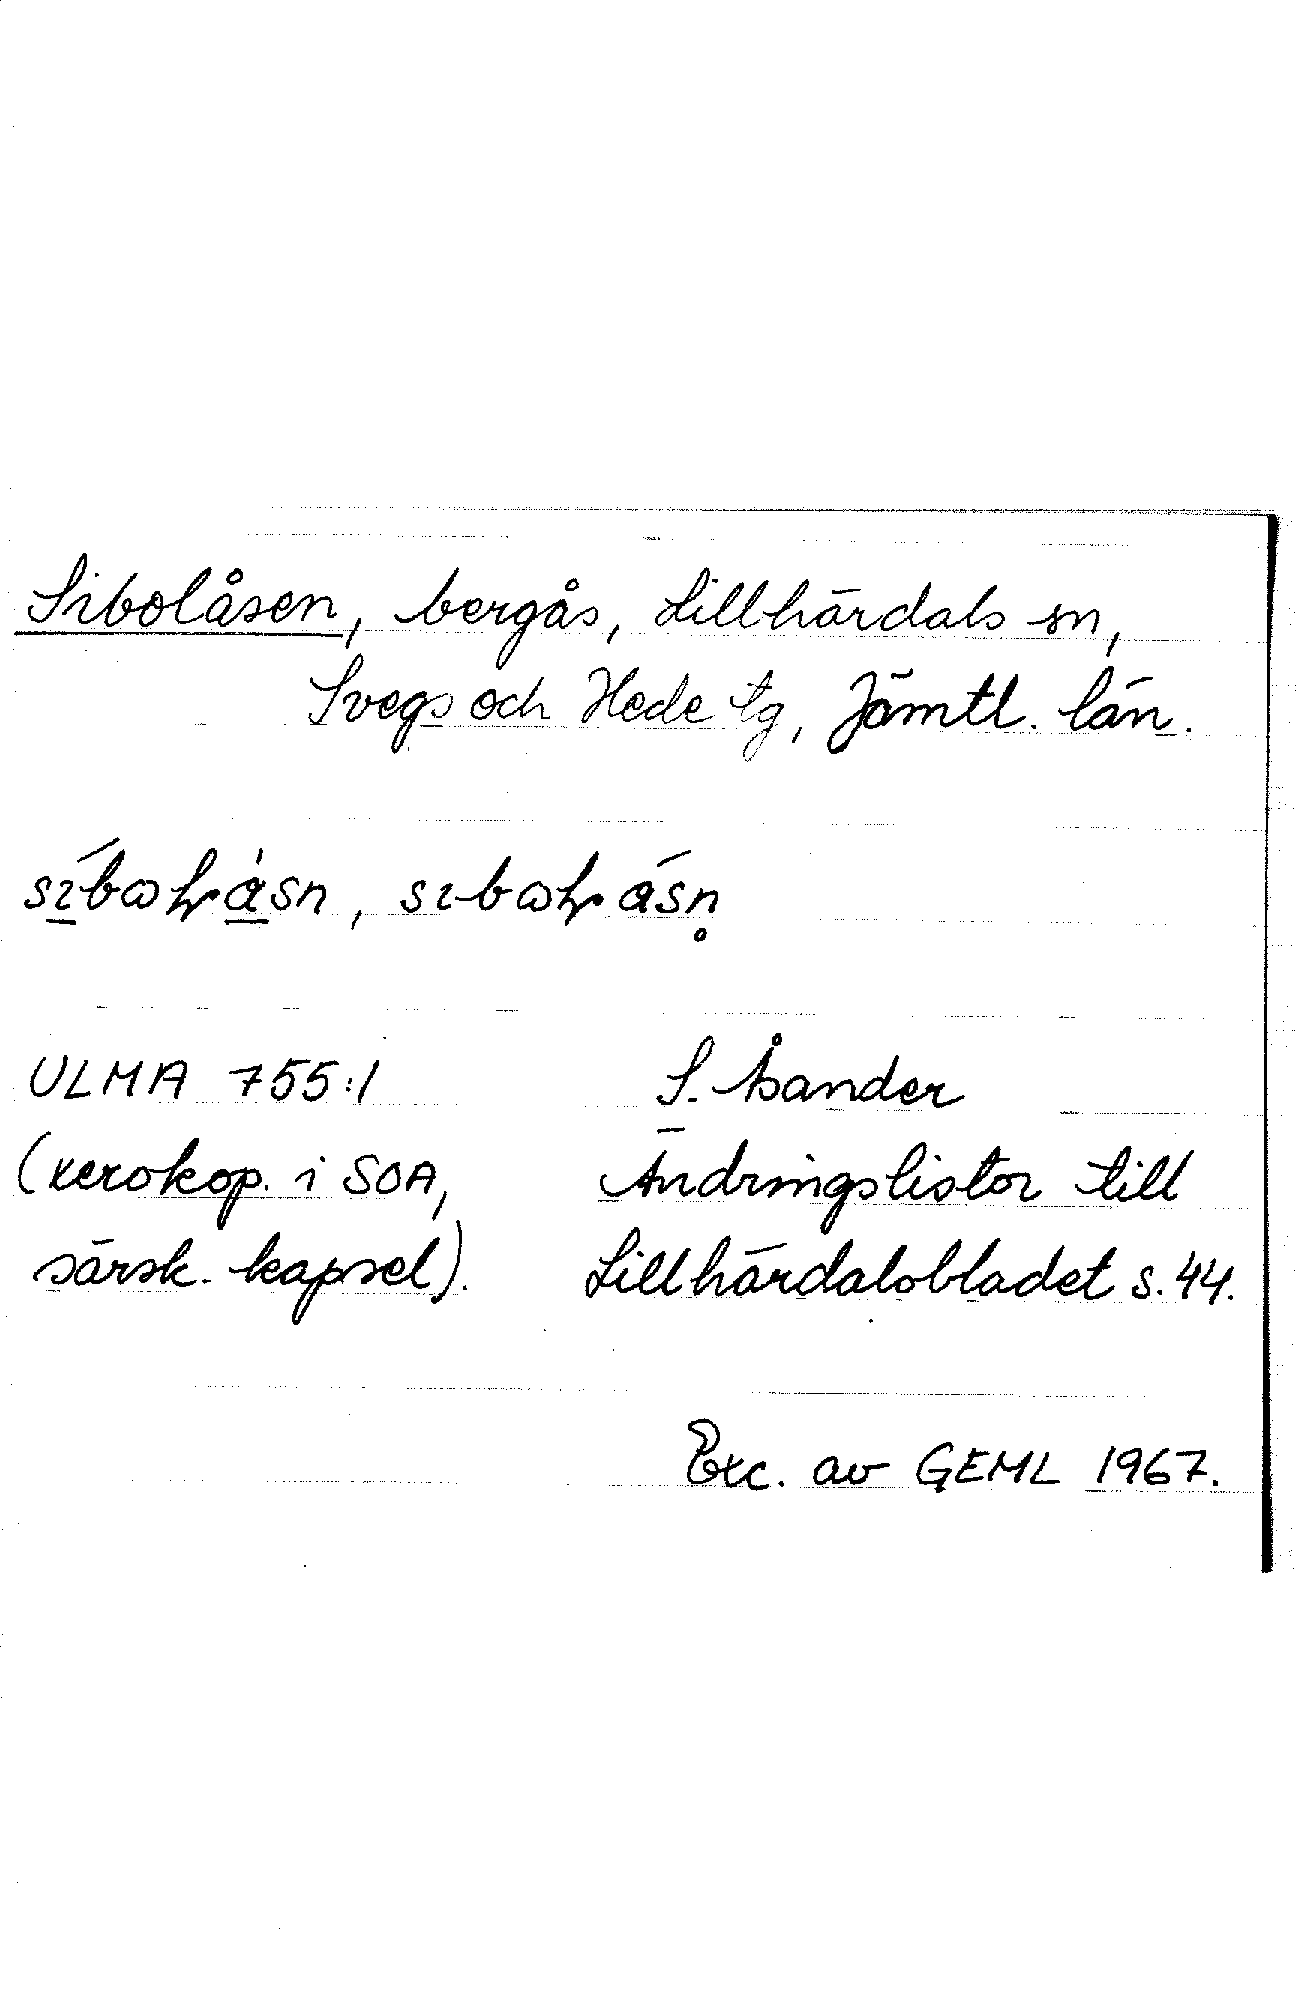 Sibolåsen, bergås, Lillhärdals sn,
Svegs och Hede tg, Jämtl. län.
ULMA 755:1
(xerokop. i SOA,
särsk. kapsel).
S. Åsander
Ändringslistor till
Lillhärdalsbladet s. 44.
Exc. av GEML 1967.